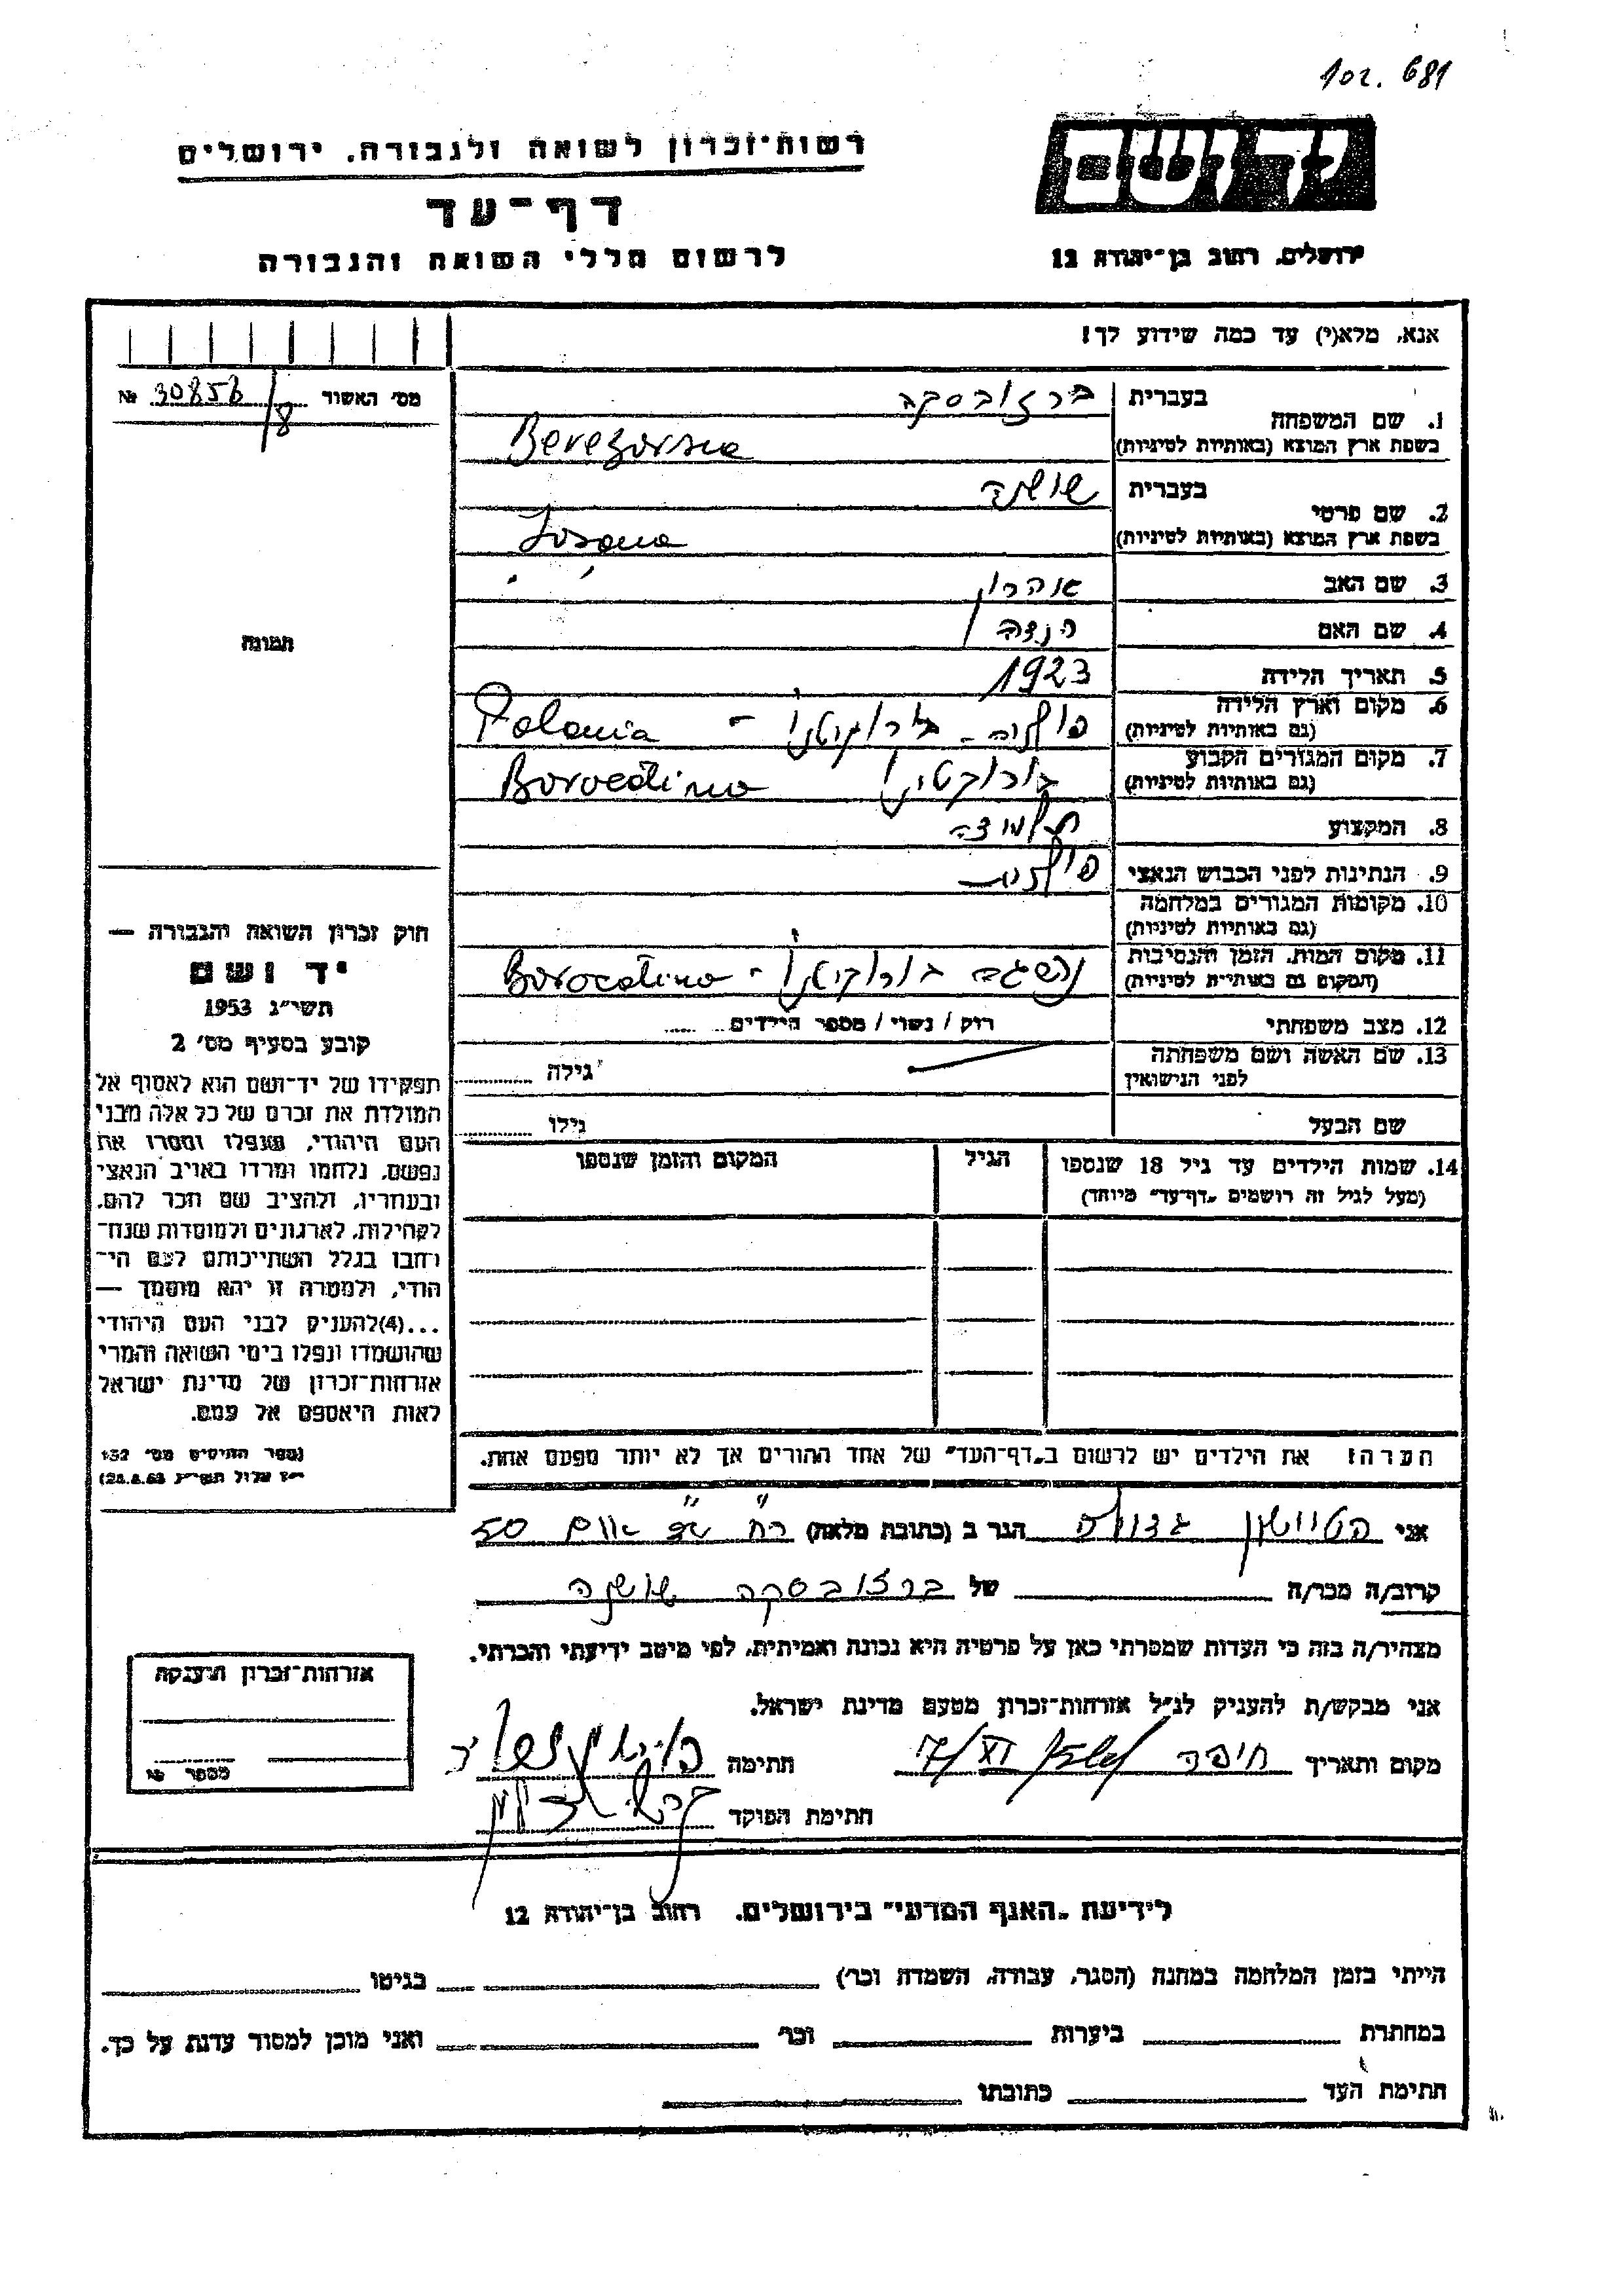 102. 681
יד ושם
ירושלים, רחוב בן־יהודה 12
רשות־זכרון לשואה ולגבורה, ירושלים
דף־עד
לרשום חללי השואה והגבורה
אנא, מלא(י) עד כמה שידוע לך!
1. שם המשפחה בעברית ברזובסקה
בשפת ארץ המוצא (באותיות לטיניות) Berezovska
2. שם פרטי בעברית שושנה
בשפת ארץ המוצא (באותיות לטיניות)
3. שם האב אהרון
4. שם האם
5. תאריך הלידה 1923
6. מקום וארץ הלידה
(גם באותיות לטיניות) פולניה - Polania
7. מקום המגורים הקבוע
(גם באותיות לטיניות)
8. המקצוע תלמידה
9. הנתינות לפני הכבוש הנאצי פולנית
10. מקומות המגורים במלחמה
(גם באותיות לטיניות)
11. מקום המות, הזמן והנסיבות
(המקום גם באותיות לטיניות)
12. מצב משפחתי רוק / נשוי / מספר הילדים
13. שם האשה ושם משפחתה
לפני הנישואין גילה
שם הבעל גילו
14. שמות הילדים עד גיל 18 שנספו הגיל המקום והזמן שנספו
(מעל לגיל זה רושמים „דף־עד" מיוחד)
הערה: את הילדים יש לרשום ב„דף־העד" של אחד ההורים אך לא יותר מפעם אחת.
מס' האשור № 30858/8
תמונה
חוק זכרון השואה והגבורה —
יד ושם
תשי"ג 1953
קובע בסעיף מס' 2
תפקידו של יד־ושם הוא לאסוף אל
המולדת את זכרם של כל אלה מבני
העם היהודי, שנפלו ומסרו את
נפשם, נלחמו ומרדו באויב הנאצי
ובעוזריו, ולהציב שם וזכר להם,
לקהילות, לארגונים ולמוסדות שנח־
רבו בגלל השתייכותם לעם הי־
הודי, ולמטרה זו יהא מוסמך —
...(4)להעניק לבני העם היהודי
שהושמדו ונפלו בימי השואה והמרי
אזרחות־זכרון של מדינת ישראל
לאות היאספם אל עמם.
(ספר החוקים מס' 132
י"ז אלול תשי"ג 28.8.53)
אני הגר ב (כתובת מלאה) 50
קרוב/ה מכר/ה של ברזובסקה שושנה
מצהיר/ה בזה כי העדות שמסרתי כאן על פרטיה היא נכונה ואמיתית, לפי מיטב ידיעתי והכרתי.
אני מבקש/ת להעניק לנ"ל אזרחות־זכרון מטעם מדינת ישראל.
מקום ותאריך חיפה חתימה
חתימת הפוקד
אזרחות־זכרון הוענקה
מספר №
לידיעת „האגף המדעי" בירושלים, רחוב בן־יהודה 12
הייתי בזמן המלחמה במחנה (הסגר, עבודה, השמדה וכר') בגיטו
במחתרת ביערות וכר' ואני מוכן למסור עדות על כך.
חתימת העד כתובתו